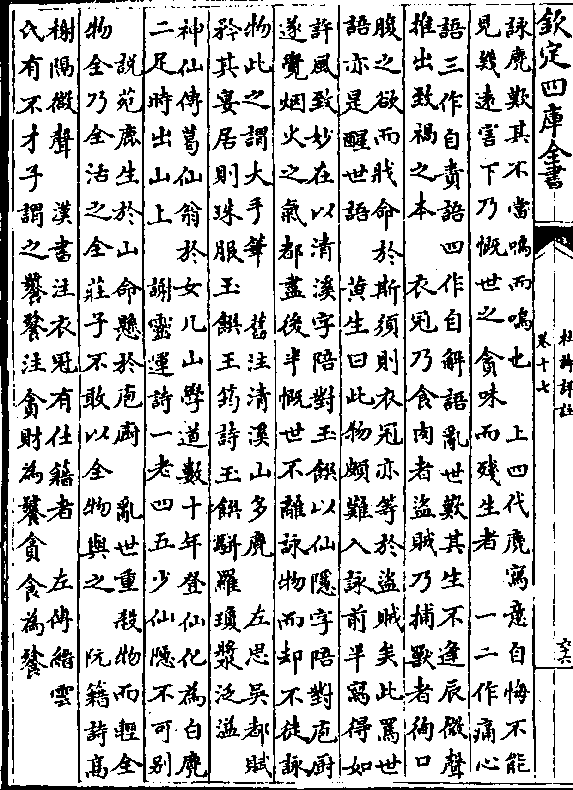 欽定四庫全書
杜詩詳註
卷十七
六
詠麂歎其不當鳴而鳴也　上四代麂寫意自悔不能
見幾遠害下乃慨世之貪味而殘生者　一二作痛心
語三作自責語四作自解語亂世歎其生不逢辰微聲
推出致禍之本　衣冠乃食肉者盜賊乃捕獸者徇口
腹之欲而戕命於斯須則衣冠亦等於盜賊矣此罵世
語亦是醒世語　黃生曰此物頗難入詠前半寫得如
許風致妙在以清溪字陪對玉饌以仙隱字陪對庖厨
遂覺烟火之氣都盡後半慨世不離詠物而却不徒詠
物此之謂大手筆　舊注清溪山多麂　左思吳都賦
矜其宴居則珠服玉饌王筠詩玉饌駢羅瓊漿泛溢
神仙傳葛仙翁於女几山學道數十年登仙化為白麂
二足時出山上　謝靈運詩一老四五少仙隱不可别
説苑鹿生於山命懸於庖廚　亂世重殺物而輕全
物全乃全活之全莊子不敢以全物與之　阮籍詩高
樹隔微聲　漢書注衣冠有仕籍者　左傳縉雲
氏有不才子謂之饕餮注貪財為饕貪食為餮